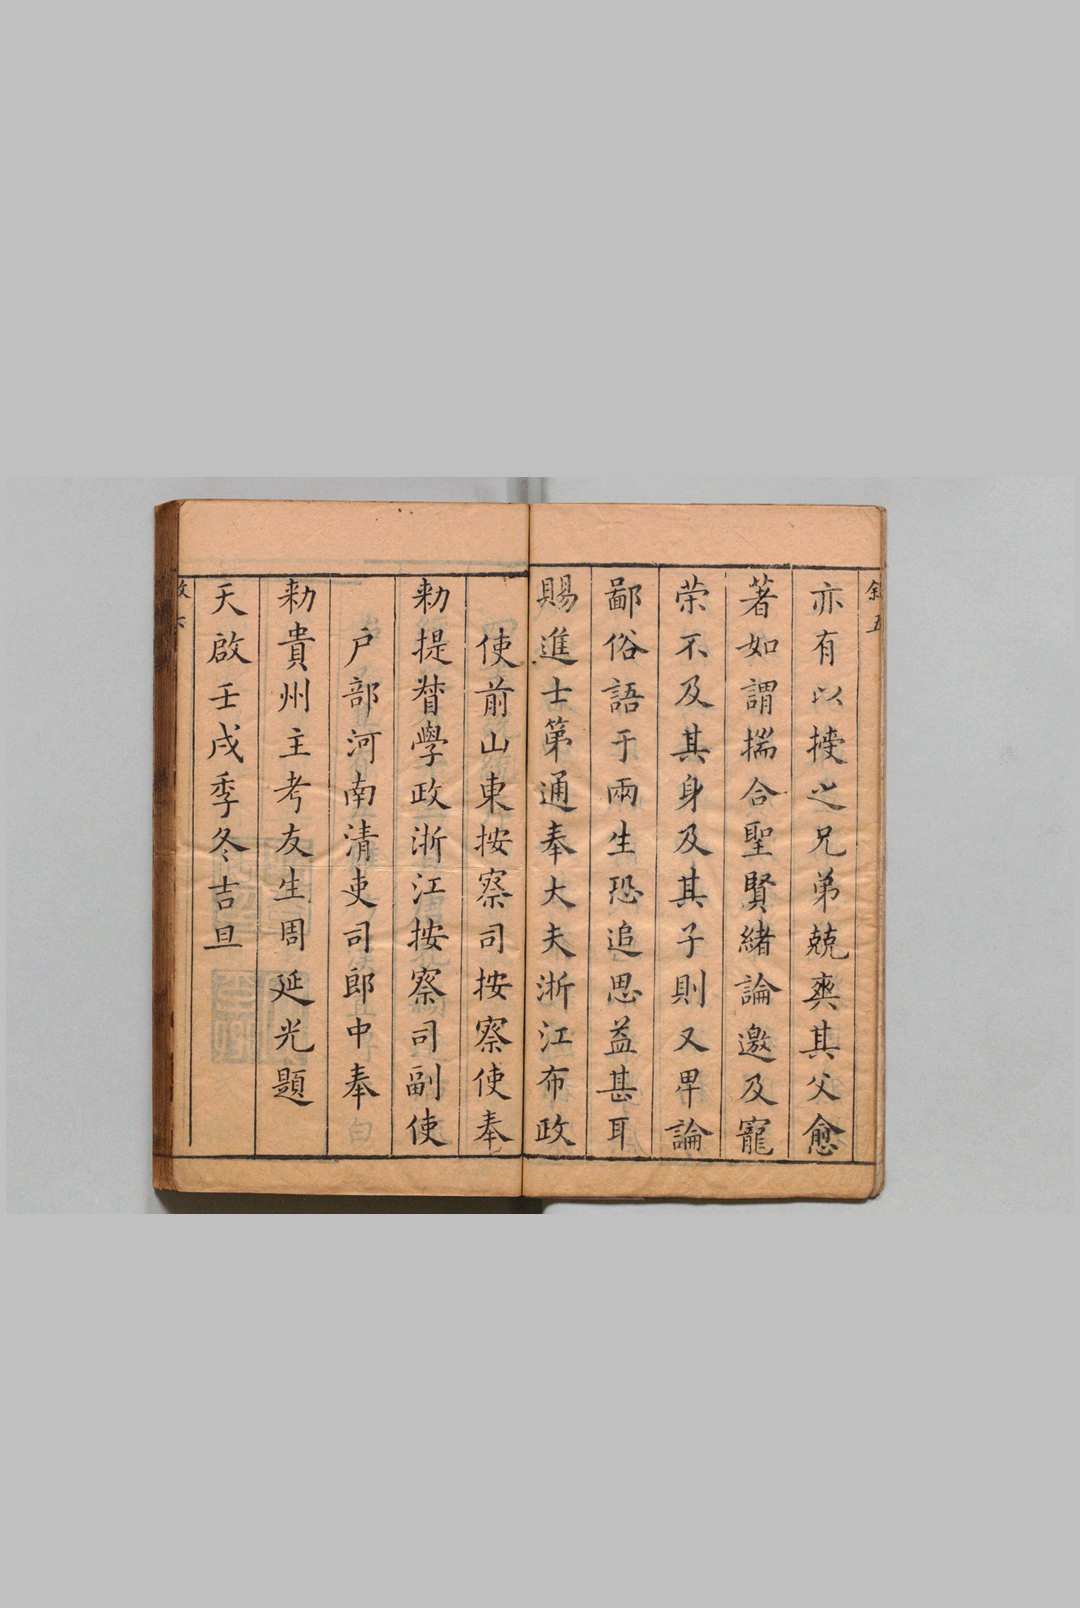 叙五
亦有以㨗之兄弟兢爽其父愈
著如謂揣合聖賢緒論邀及寵
荣不及其身及其子則又畀論
鄙俗語于兩生恐追思益甚耳
賜進士第通奉大夫浙江布政
使前山東按察司按察使奉
勑提督學政浙江按察司副使
户部河南清吏司郎中奉
勑貴州主考友生周延光題
天啟壬戌季冬吉旦
六